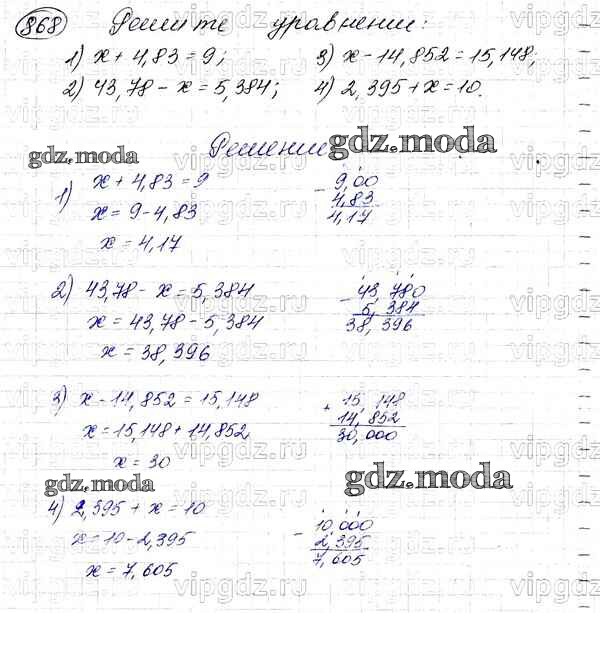 868 Решите уравнении:
1) x + 4,83 = 9; 3) x - 14,852 = 15,148;
2) 43,78 - x = 5,384; 4) 2,395 + x = 10.
Решение
gdz.moda gdz.moda
1) x + 4,83 = 9
x = 9 - 4,83
x = 4,17
- 9,00
4,83
4,17
2) 43,78 - x = 5,384
x = 43,78 - 5,384
x = 38,396
- 43,780
5,384
38,396
3) x - 14,852 = 15,148
x = 15,148 + 14,852
x = 30
+ 15,148
14,852
30,000
gdz.moda gdz.moda
4) 2,395 + x = 10
x = 10 - 2,395
x = 7,605
- 10,000
2,395
7,605
vipgdz.ru